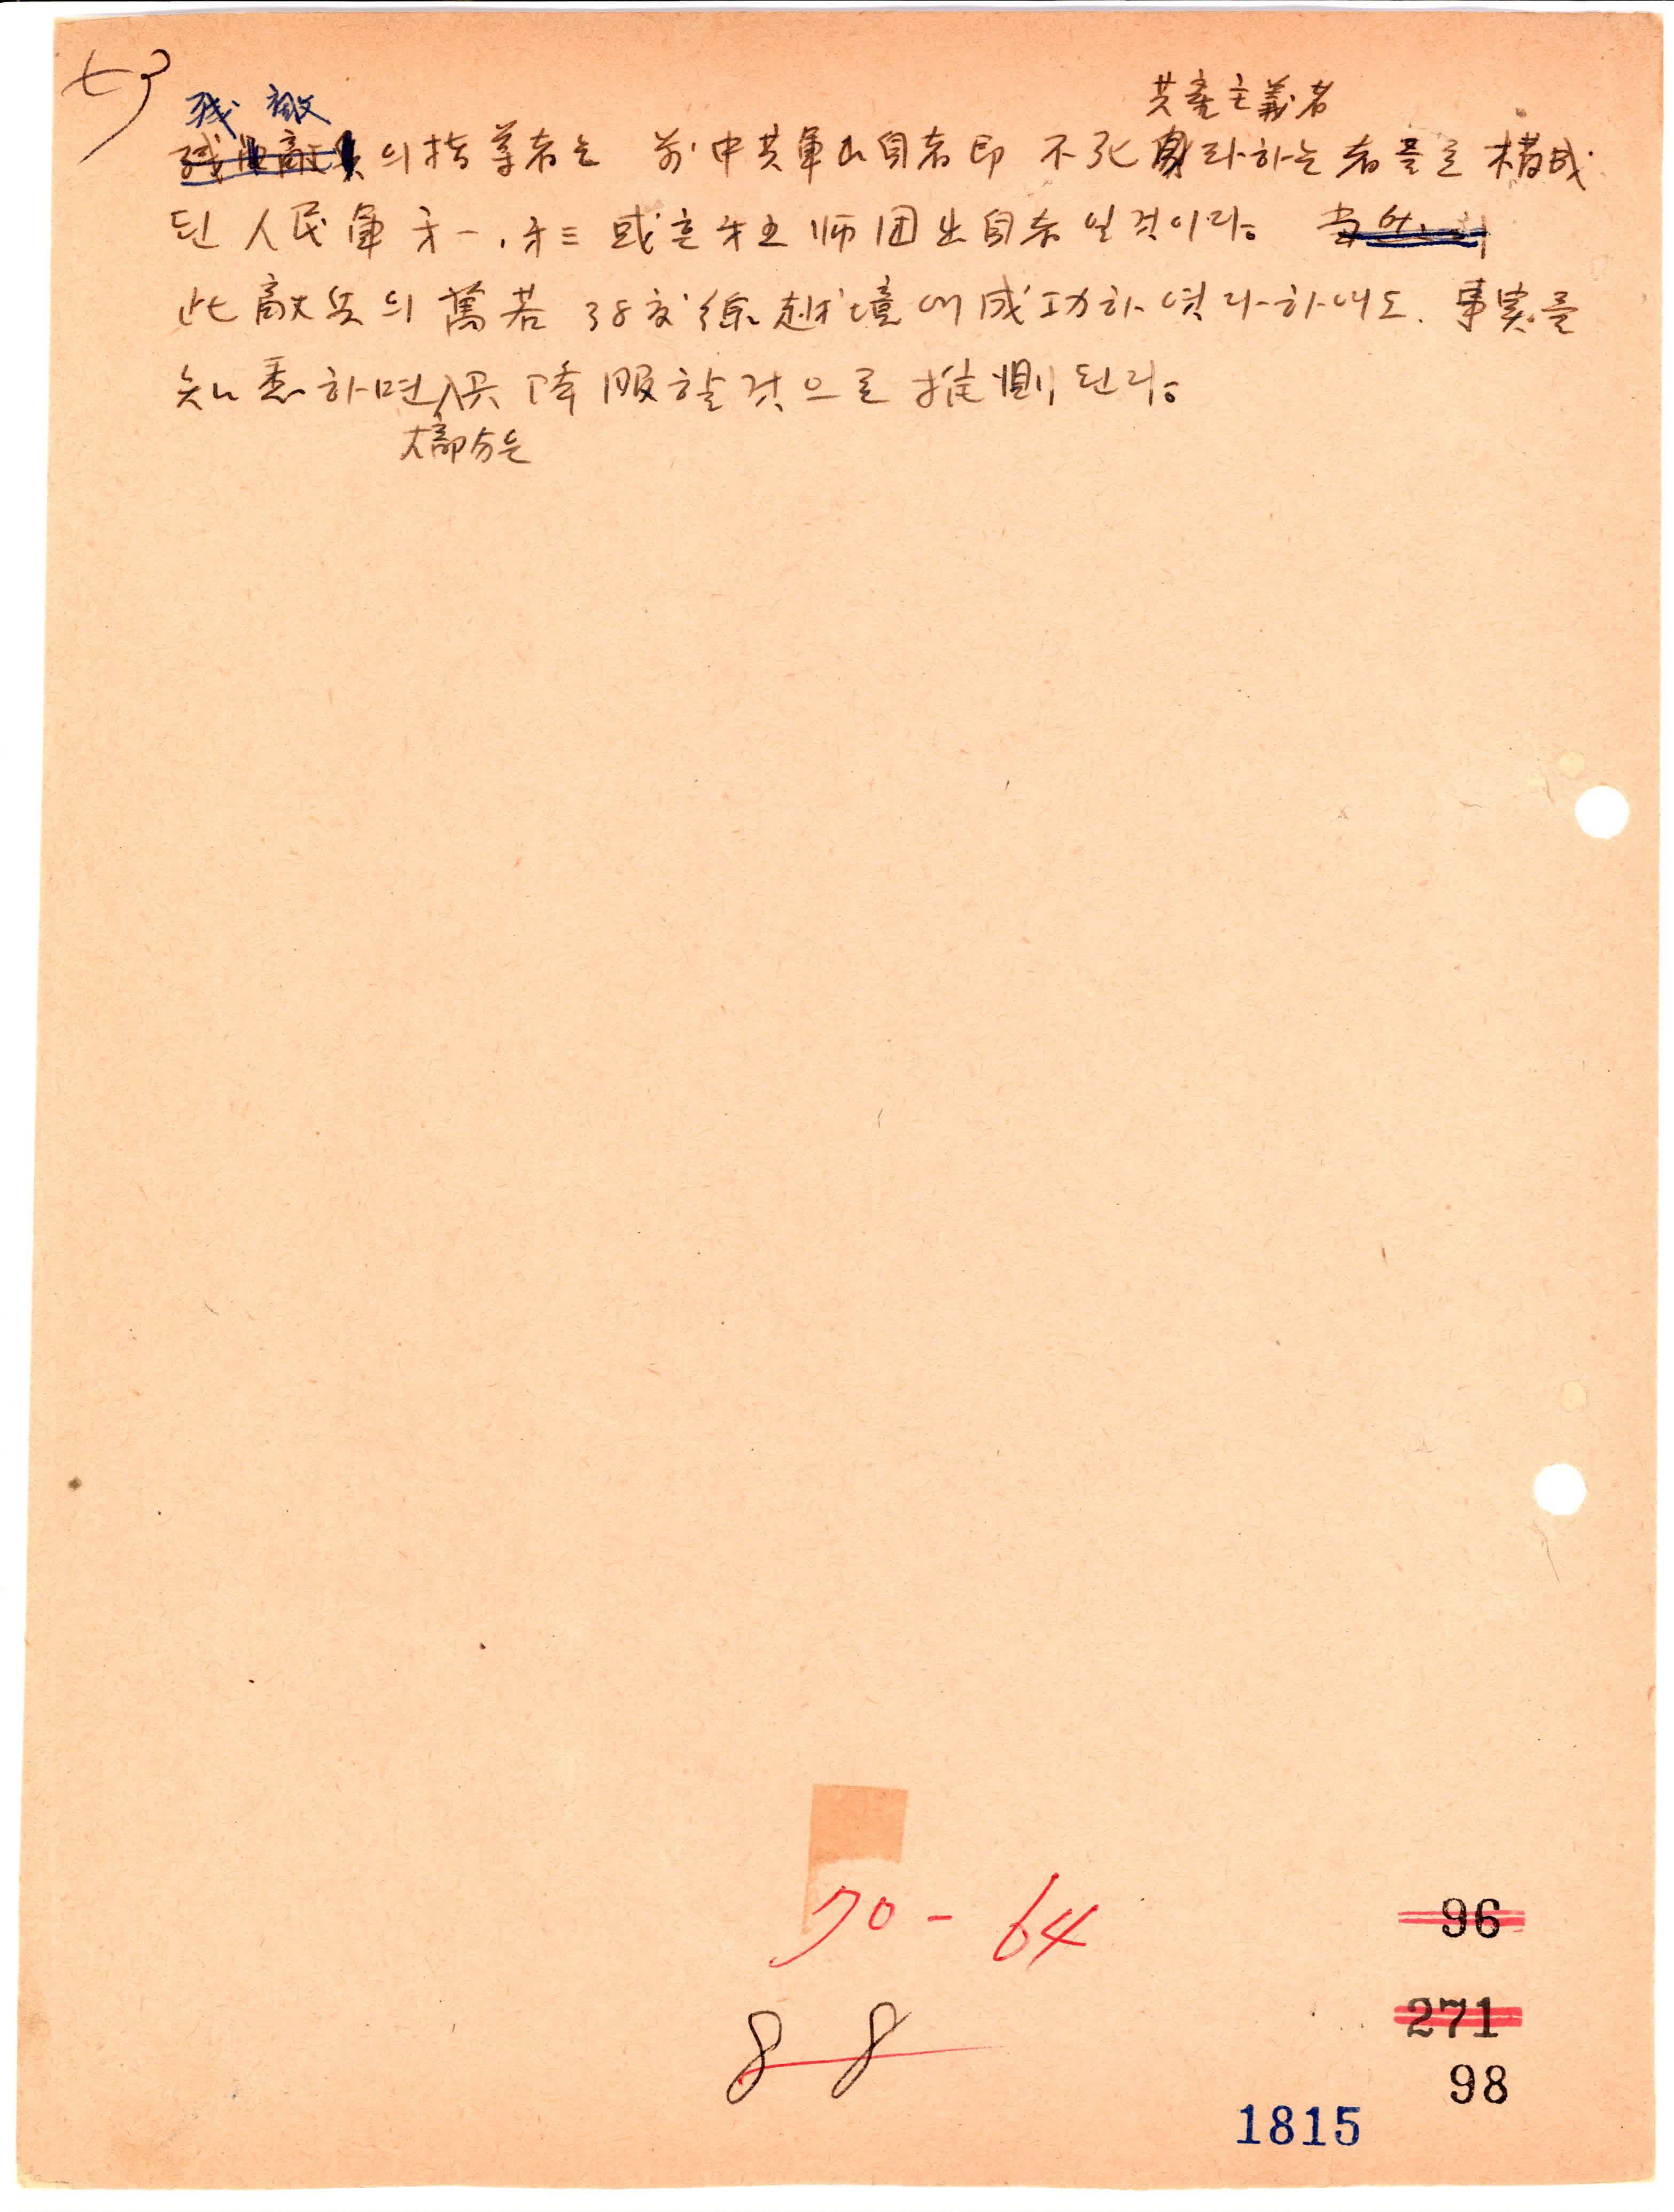 共產主義者
残敵
의 指導者는 前 中共軍出身者 即 不死身라하는 者들로 構成
된 人民軍 才一, 才三 或은 才五 师团 出身者일 것이다。
此 敵兵의 萬若 38度線 越境에 成功하였다 하여도, 事実를
知悉하면 降服할 것으로 推測된다。
大部分은
70-64
96
88
271
98
1815